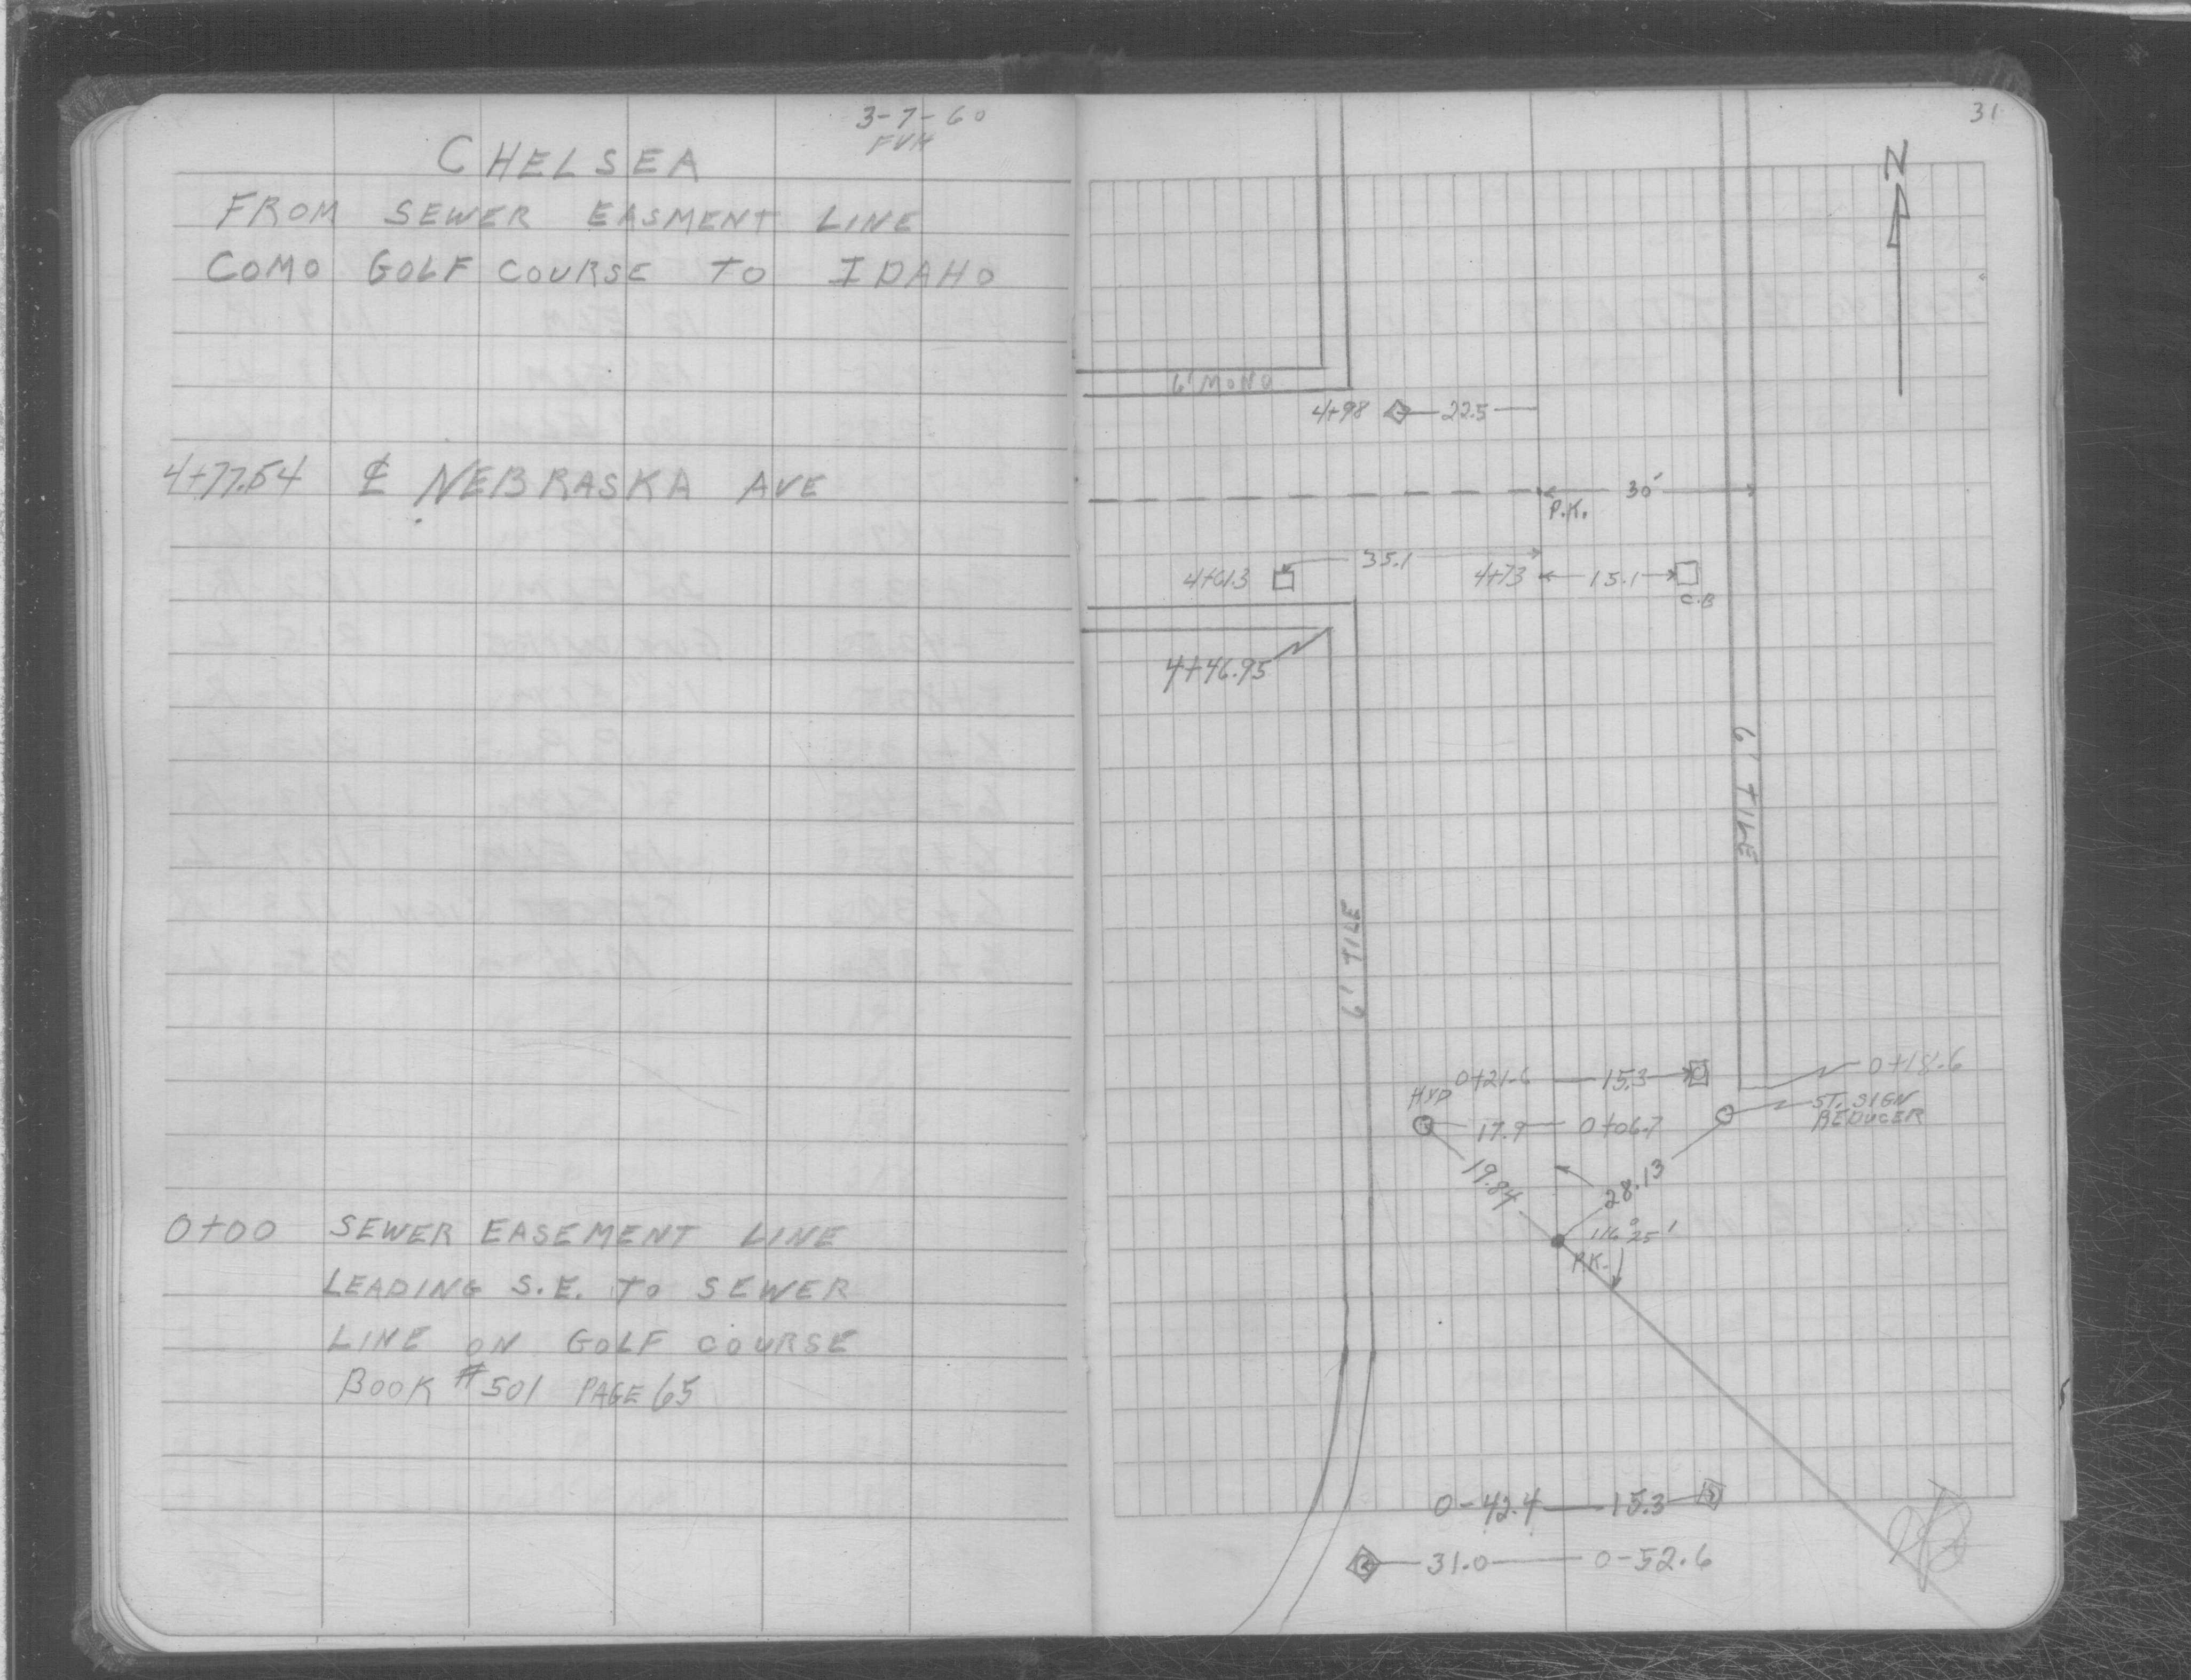 3-7-60
FVH
CHELSEA
FROM SEWER EASMENT LINE
COMO GOLF COURSE TO IDAHO
4+77.54 ℄ NEBRASKA AVE
0+00 SEWER EASEMENT LINE
LEADING S.E. TO SEWER
LINE ON GOLF COURSE
BOOK #501 PAGE 65
31
N
6' MONO
4+98 22.5
30'
P.K.
35.1
4+61.3 4+73 15.1
C.B
4+46.95
6' TILE
6' TILE
0+21.6 15.3 0+18.6
HYD
17.9 0+06.7
ST. SIGN
REDUCER
19.84 28.13
116° 25'
P.K.
0-42.4 15.3
31.0 0-52.6